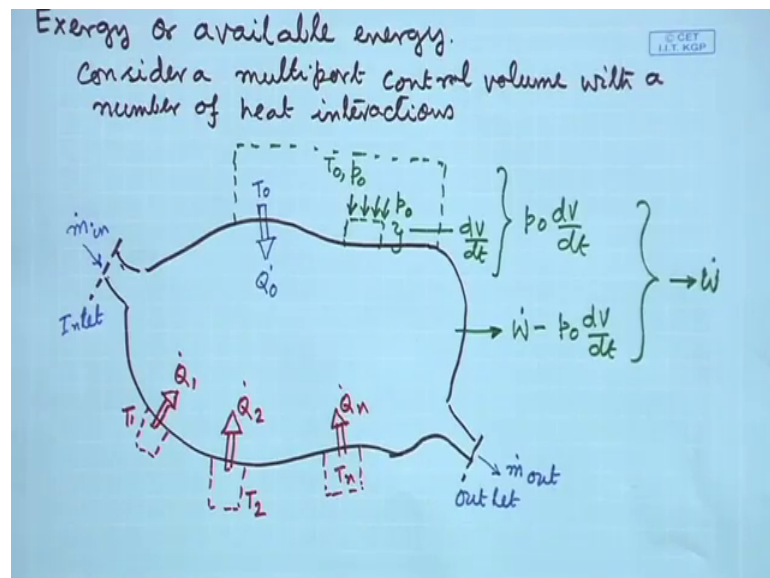 Exergy or available energy.
© CET
I.I.T. KGP
Consider a multiport control volume with a
number of heat interactions
T₀, p₀
T₀
p₀
dV/dt
p₀ dV/dt
ṁin
Q̇₀
Ẇ
Inlet
Ẇ - p₀ dV/dt
Q̇₁
Q̇₂
Q̇n
T₁
T₂
Tn
ṁout
Outlet